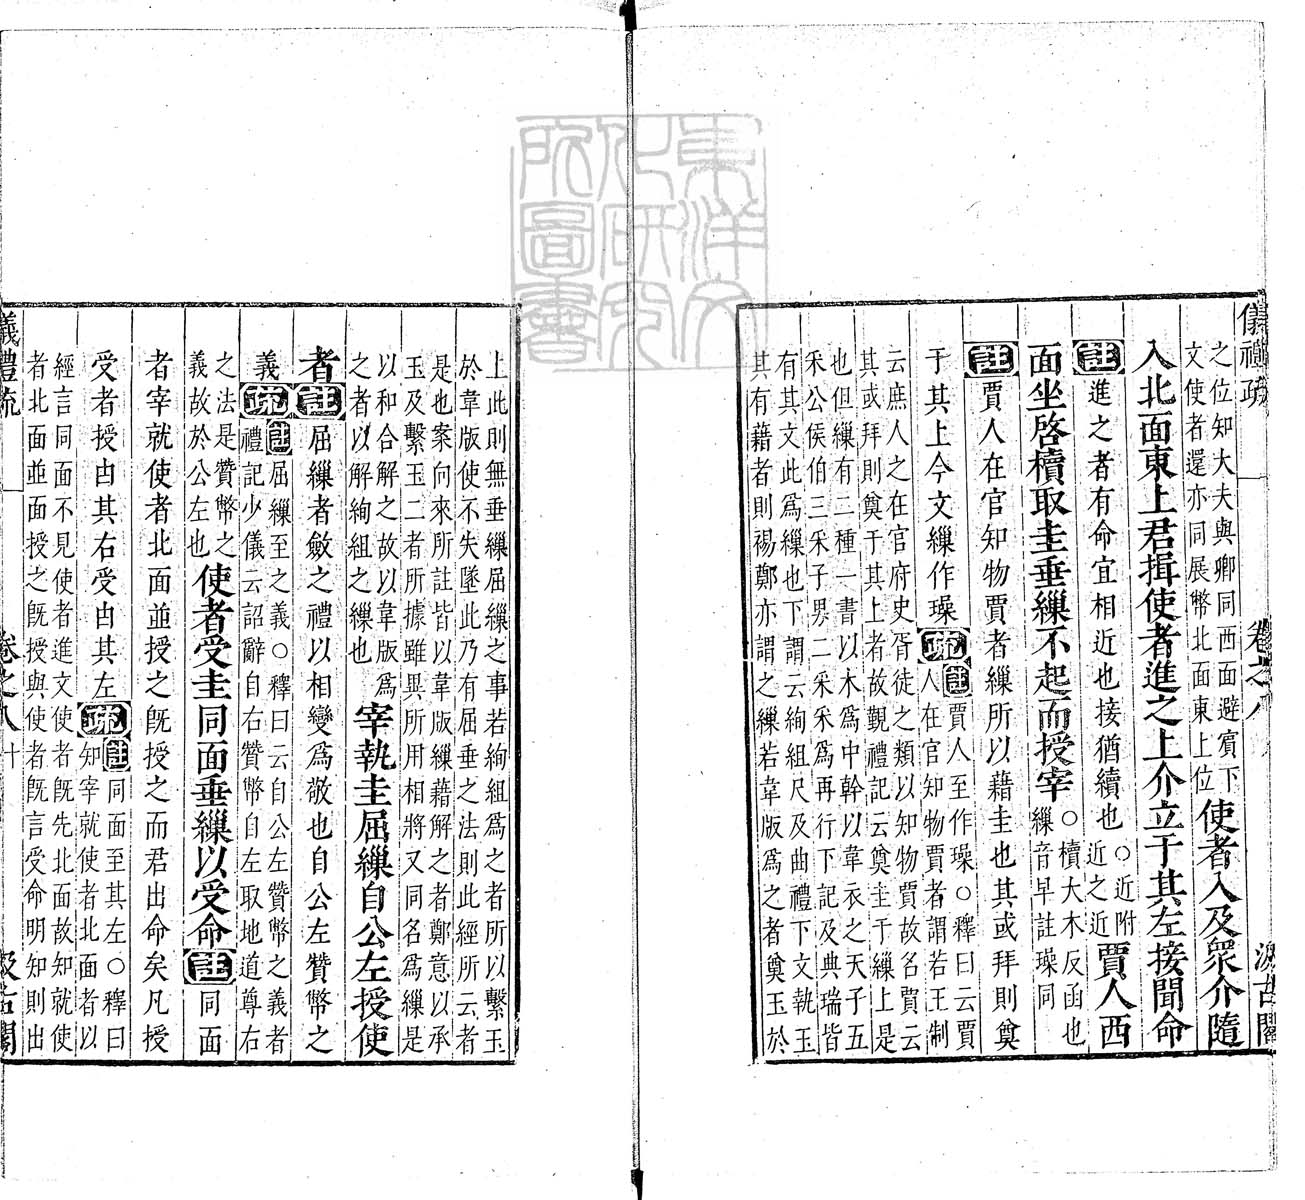 儀禮疏 卷之八 汲古閣
之位知大夫與卿同西面避賓下
文使者還亦同展幣北面東上位
使者入及眾介隨
入北面東上君揖使者進之上介立于其左接聞命
註進之者有命宜相近也接猶續也○近附
近之近
賈人西
面坐啓櫝取圭垂繅不起而授宰
○櫝大木反函也
繅音早註璪同
註賈人在官知物賈者繅所以藉圭也其或拜則奠
于其上今文繅作璪
疏註賈人至作璪○釋曰云賈
人在官知物賈者謂若王制
云庶人之在官府史胥徒之類以知物賈故名賈云
其或拜則奠于其上者故覲禮記云奠圭于繅上是
也但繅有二種一書以木為中幹以韋衣之天子五
采公侯伯三采子男二采采為再行下記及典瑞皆
有其文此為繅也下謂云絢組尺及曲禮下文執玉
其有藉者則裼鄭亦謂之繅若韋版為之者奠玉於
上此則無垂繅屈繅之事若絢組為之者所以繫玉
於韋版使不失墜此乃有屈垂之法則此經所云者
是也案向來所註皆以韋版繅藉解之者鄭意以承
玉及繫玉二者所據雖異所用相將又同名為繅是
以和合解之故以韋版為
之者以解絢組之繅也
宰執圭屈繅自公左授使
者註屈繅者斂之禮以相變為敬也自公左贊幣之
義疏註屈繅至之義○釋曰云自公左贊幣之義者
禮記少儀云詔辭自右贊幣自左取地道尊右
之法是贊幣之
義故於公左也
使者受圭同面垂繅以受命註同面
者宰就使者北面並授之旣授之而君出命矣凡授
受者授由其右受由其左
疏註同面至其左○釋曰
知宰就使者北面者以
經言同面不見使者進文使者旣先北面故知就使
者北面並面授之旣授與使者旣言受命明知則出
儀禮疏 卷之八 十 汲古閣
東洋文化研究所圖書